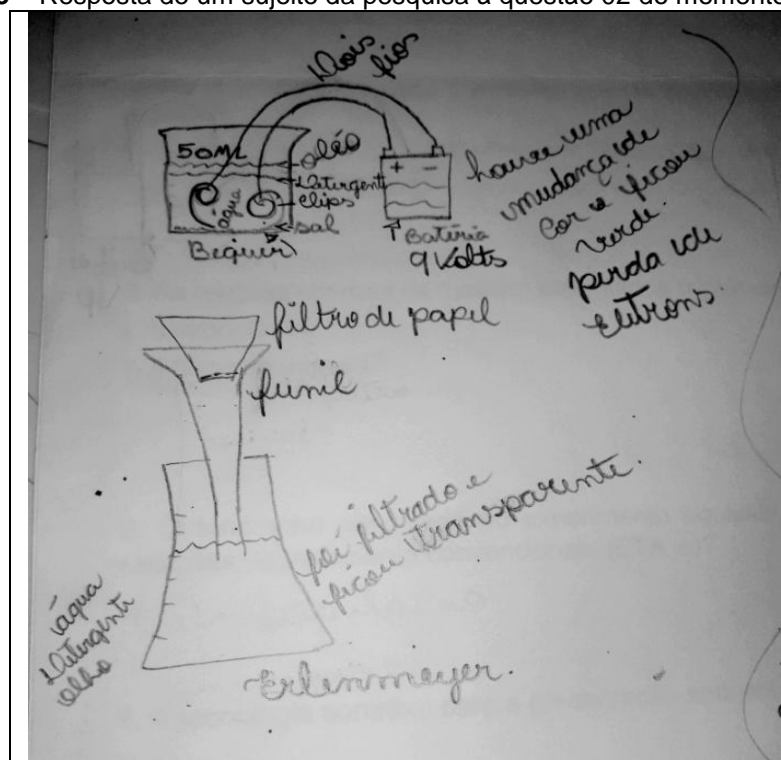 Resposta de um sujeito da pesquisa à questão 02 do momento
Dois
fios
50ML
oléo
Detergente
água
clips
sal
Bequer
+ -
Bateria
9 Volts
houve uma
mudança de
cor e ficou
verde.
perda de
elétrons.
filtro de papel
funil
foi filtrado e
ficou transparente.
água
Detergente
olho
Erlenmeyer.